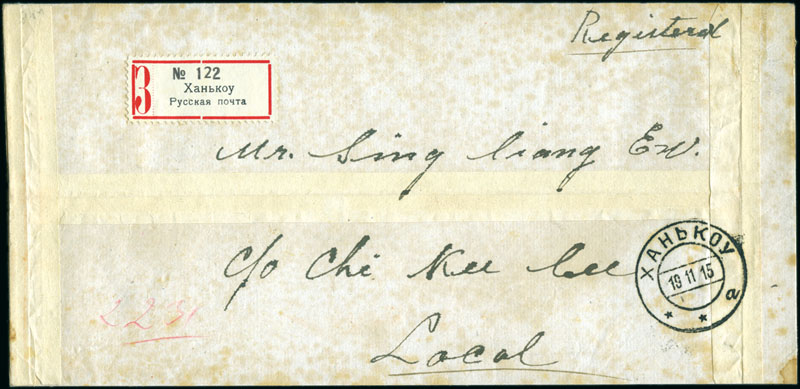 Registered
З
№ 122
Ханькоу
Русская почта
Mr. Sing Liang
c/o Chi Kee
Local
ХАНЬКОУ
19 11 15
а